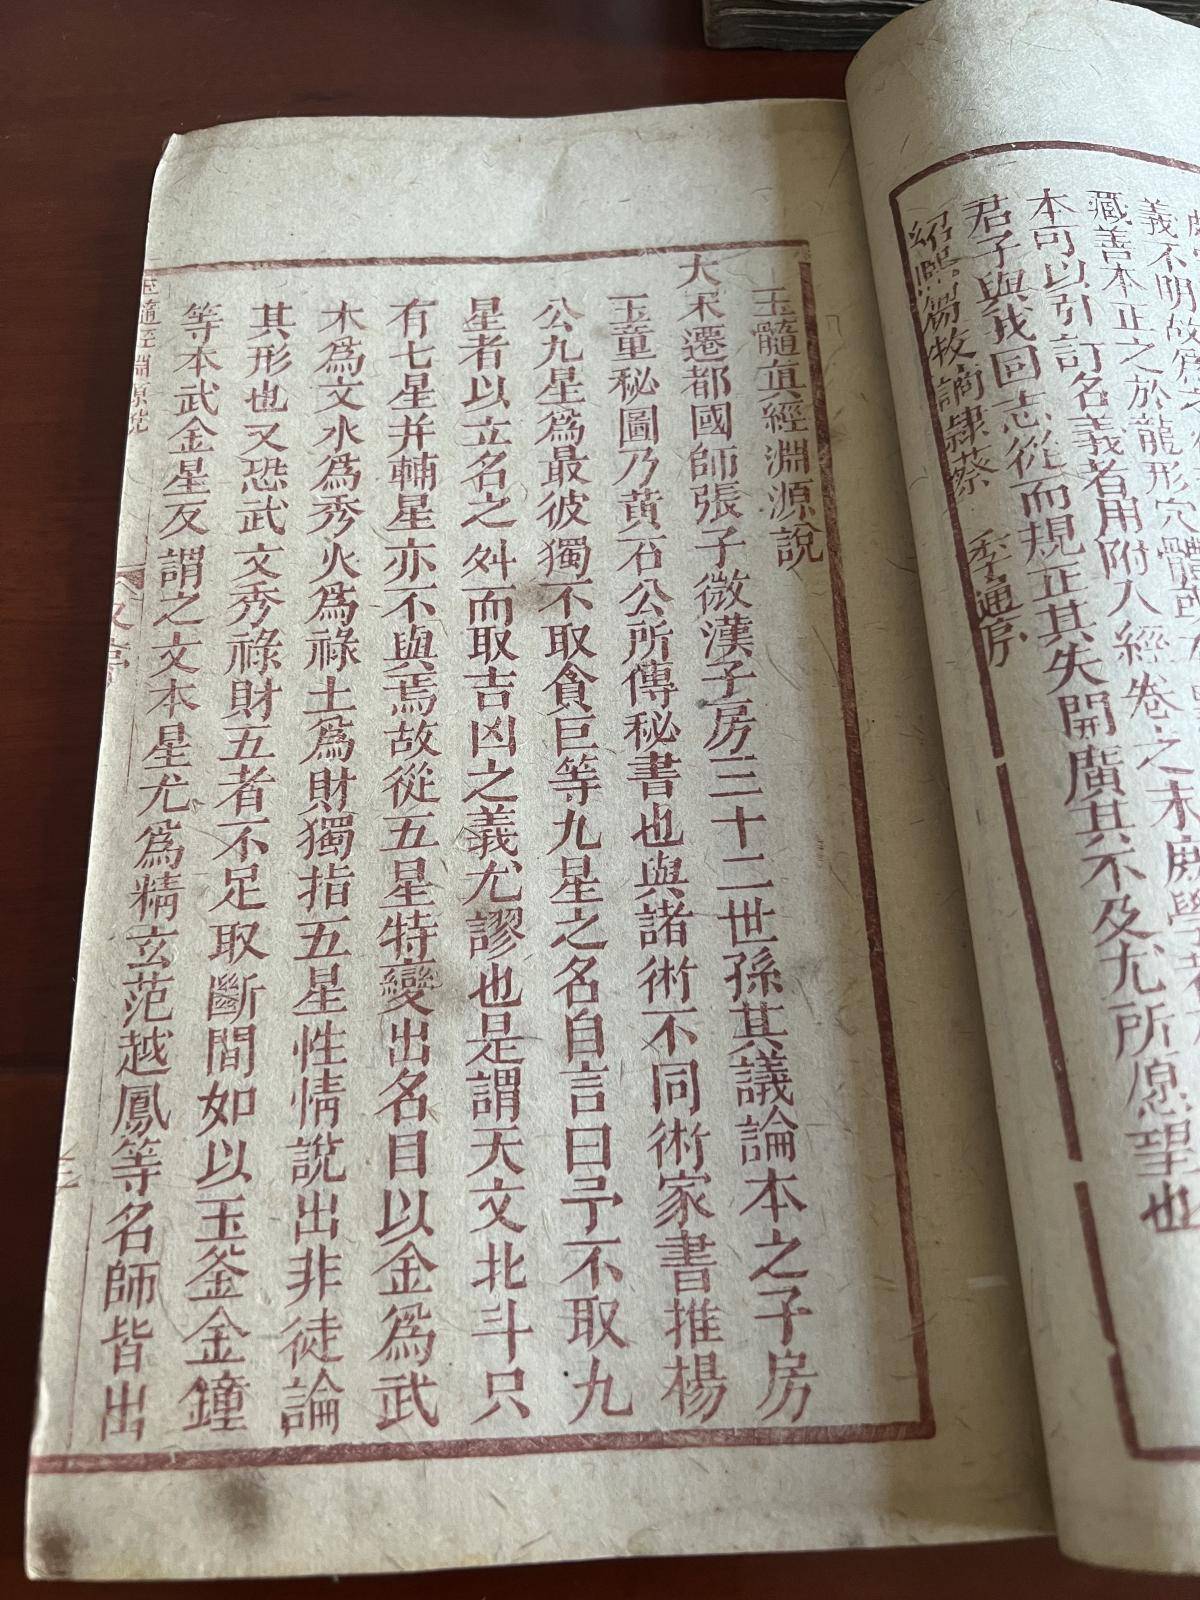 義不明故為
藏善本正之於龍形穴體
本可以引訂名義者用附入經卷之末庶學者
君子與我同志從而規正其失開廣其不及尤所愿望也
紹熙芻牧謫隷蔡 季通序
玉髓真經淵源說
大宋遷都國師張子微漢子房三十二世孫其議論本之子房
玉童秘圖乃黃石公所傳秘書也與諸術不同術家書推楊
公九星爲最彼獨不取貪巨等九星之名自言曰予不取九
星者以立名之舛而取吉凶之義尤謬也是謂天文北斗只
有七星并輔星亦不與焉故從五星特變出名目以金爲武
木爲文水爲秀火爲祿土爲財獨指五星性情說出非徒論
其形也又恐武文秀祿財五者不足取斷間如以玉釜金鐘
等本武金星反謂之文本星尤爲精玄范越鳳等名師皆出
玉髓經淵源說
又序